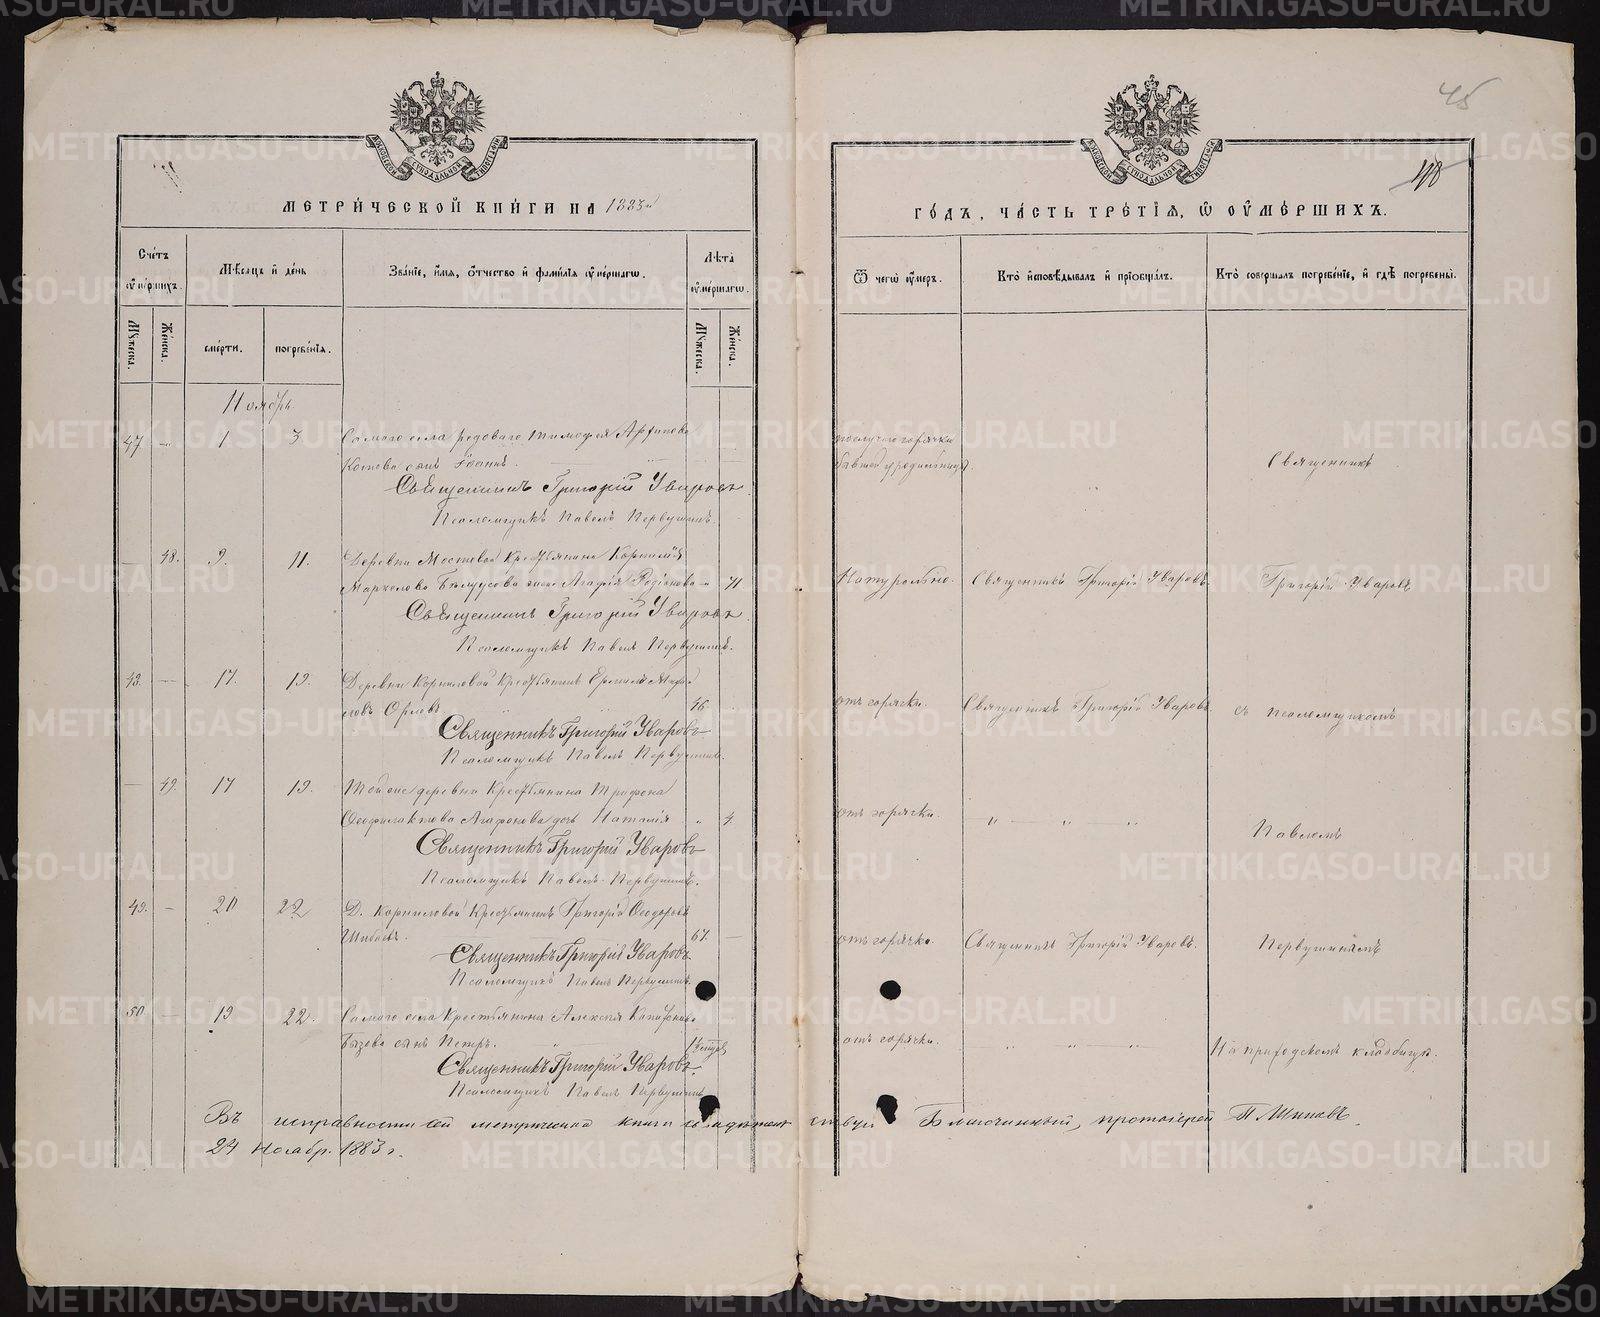 45
118
МЕТРИ́ЧЕСКОЙ КНИ́ГИ НА 1883й
ГО́ДЪ, ЧА́СТЬ ТРЕ́ТІЯ, Ѿ ОУ҆МЕ́РШИХЪ.
Сче́тъ оу҆ме́ршихъ.
Мѣ́сяцъ и҆ де́нь
Зва́ніе, и҆́мя, ѻ҆́тчество и҆ фами́лія оу҆ме́ршагѡ.
Лѣ́та оу҆ме́ршагѡ.
Ѿ чегѡ̀ оу҆́меръ.
Кто̀ и҆сповѣ́дывалъ и҆ пріобща́лъ.
Кто̀ соверша́лъ погребе́ніе, и҆ гдѣ̀ погребены̀.
Мꙋжеска.
Же́нска.
сме́рти.
погребе́нія.
Мꙋжеска.
Же́нска.
Ноябрь.
47. — 1 3 Самаго села рядоваго Тимофея Архипова
Котова сынъ Іоаннъ.
Священникъ Григорій Уваровъ
Псаломщикъ Павелъ Первушинъ.
послучаю горячки
бывшей у родильницы.
Священникъ
— 48. 9. 11. Деревни Мостовой Крестьянина Корнилія
Маркелова Бѣлоусова жена Агафія Родіонова " 71
Священникъ Григорій Уваровъ
Псаломщикъ Павелъ Первушинъ.
Натурально. Священникъ Григорій Уваровъ. Григорій Уваровъ
48. — 17. 19. Деревни Корниловой Крестьянинъ Ермилъ
Орловъ 46
Священникъ Григорій Уваровъ
Псаломщикъ Павелъ Первушинъ.
отъ горячки. Священникъ Григорій Уваровъ съ псаломщикомъ
— 49. 17 19. Тойже деревни Крестьянина Трифона
Феофилактова Агафонова дочь Наталія " 4.
Священникъ Григорій Уваровъ
Псаломщикъ Павелъ Первушинъ.
отъ горячки. " — " — " Павломъ
49. — 20 22 Д. Корниловой Крестьянинъ Григорій Феодоровъ
Шибаевъ. 67. —
Священникъ Григорій Уваровъ
Псаломщикъ Павелъ Первушинъ.
отъ горячки. Священникъ Григорій Уваровъ. Первушинымъ
50 — 19 22. Самаго села Крестьянина Алексія
Бызова сынъ Петръ.
Священникъ Григорій Уваровъ.
Псаломщикъ Павелъ Первушинъ
отъ горячки. " — " — " На приходскомъ кладбищѣ.
Въ исправности сей метрической книги свидѣтельствую Благочинный, протоіерей П. Шишовъ.
24 Ноября 1883 г.